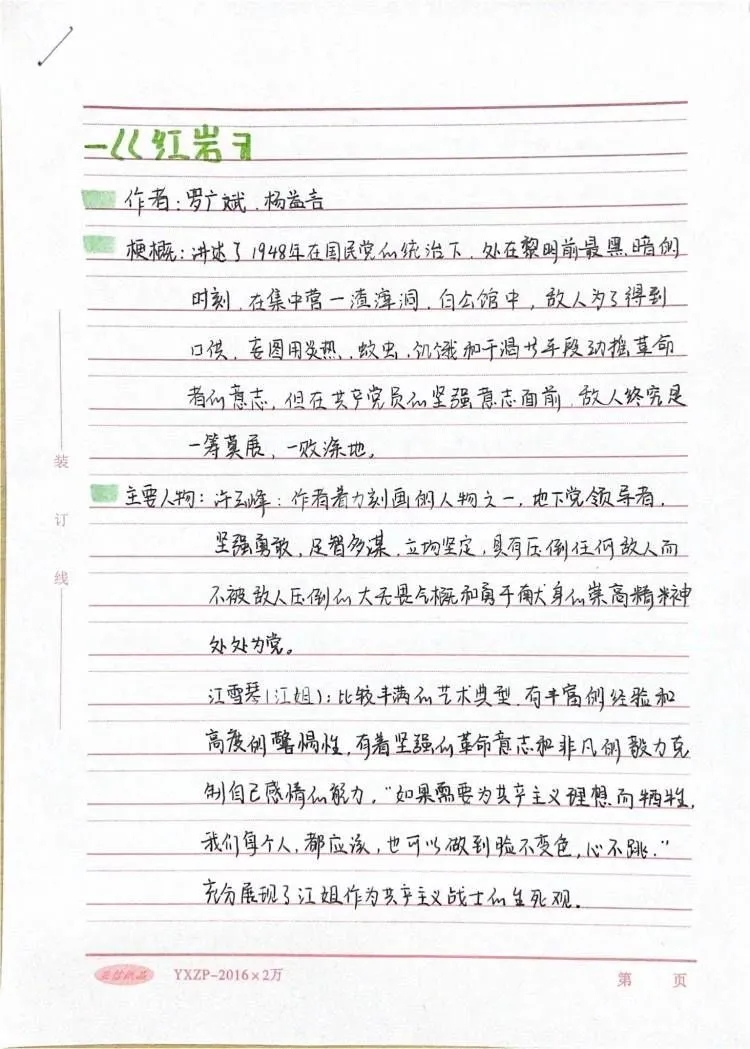 一《红岩》
作者：罗广斌、杨益言
梗概：讲述了1948年在国民党的统治下，处在黎明前最黑暗的
时刻，在集中营一渣滓洞，白公馆中，敌人为了得到
口供，妄图用炎热，蚊虫，饥饿和干渴等手段动摇革命
者的意志，但在共产党员的坚强意志面前，敌人终究是
一筹莫展，一败涂地。
主要人物：许云峰：作者着力刻画的人物之一，地下党领导者，
坚强勇敢，足智多谋，立场坚定，具有压倒任何敌人而
不被敌人压倒的大无畏气概和勇于献身的崇高精神
处处为党。
江雪琴（江姐）：比较丰满的艺术典型，有丰富的经验和
高度的警惕性，有着坚强的革命意志和非凡的毅力克
制自己感情的能力，“如果需要为共产主义理想而牺牲，
我们每个人，都应该，也可以做到脸不变色，心不跳.”
充分展现了江姐作为共产主义战士的生死观。
装
订
线
YXZP-2016×2万
第 页